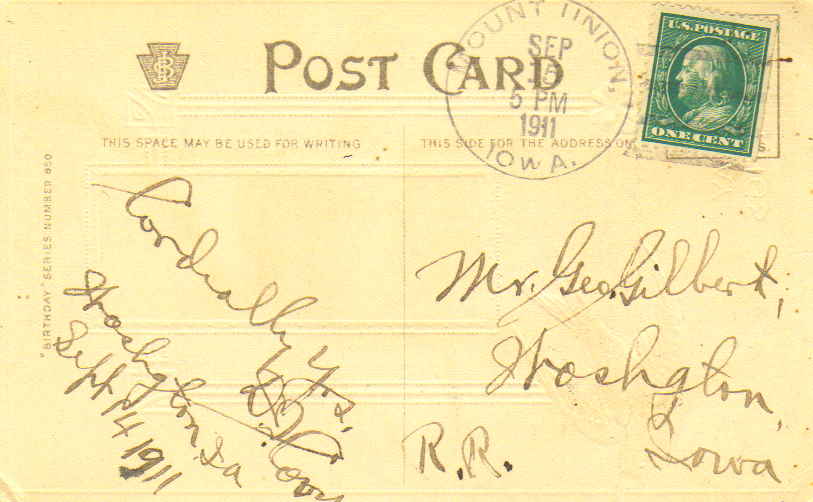 POST CARD
MOUNT UNION,
SEP
15
5 PM
1911
IOWA.
U.S. POSTAGE
ONE CENT
THIS SPACE MAY BE USED FOR WRITING
THIS SIDE FOR THE ADDRESS ON
"BIRTHDAY" SERIES NUMBER 850
Cordially Yrs,
Washgton. Ia
Sept 14 1911
Mr. Geo. Gilbert,
Washgton,
R.R. Iowa